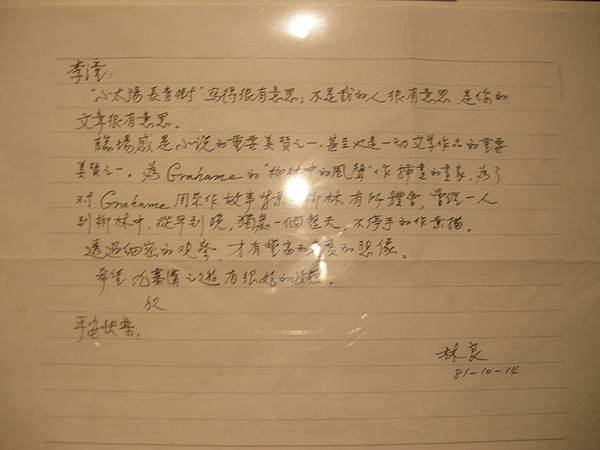 李潼:
"小太陽長青樹"寫得很有意思;不是我的人很有意思,是你的
文章很有意思。
臨場感是小說的重要美質之一,甚至也是一切文學作品的重要
美質之一。為Grahame的"柳林中的風聲"作插畫的畫家,為了
对Grahame用來作故事背景的柳林有所體會,曾經一人
到柳林中,從早到晚,獨處一個整天,不停手的作素描。
透過細密的觀察,才有豐富的 度的想像。
希望九寨溝之遊有很好的收穫。
祝
平安快樂。
林良
81-10-14